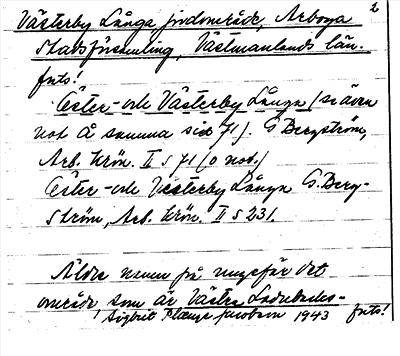 2
Västerby Långa jordområde, Arboga
Stadsförsamling, Västmanlands län.
forts!
Öster- och Västerby Långa (se även
not å samma sid 71). G Bergström,
Arb. krön. II s 71 (o not.)
Öster- och Västerby Långa G. Berg-
ström, Arb. krön. II s 231.
Äldre namn på ungefär det
område som är Västra Ladubacks-
Sigbrit Plænge Jacobson 1943 forts!